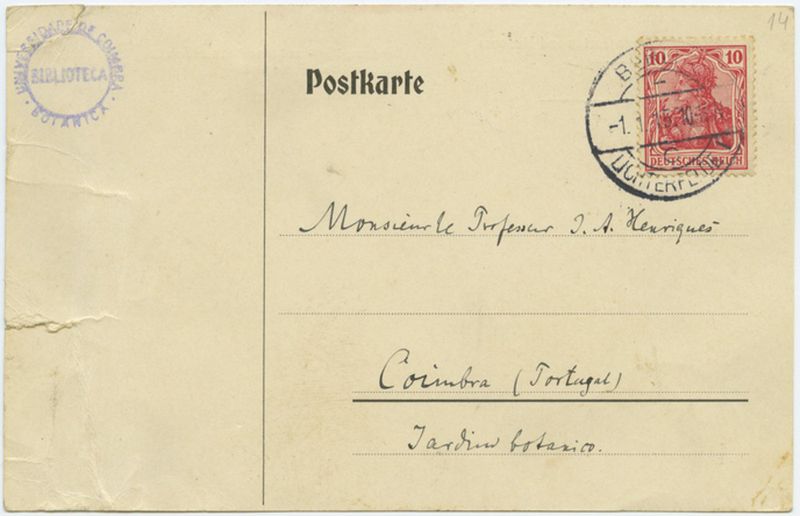 UNIVERSIDADE DE COIMBRA
BIBLIOTECA
BOTANICA
14
Postkarte
10 10
DEUTSCHES REICH
LICHTERFELDE
Monsieur le Professeur J. A. Henriques
Coimbra (Portugal)
Jardim botanico.